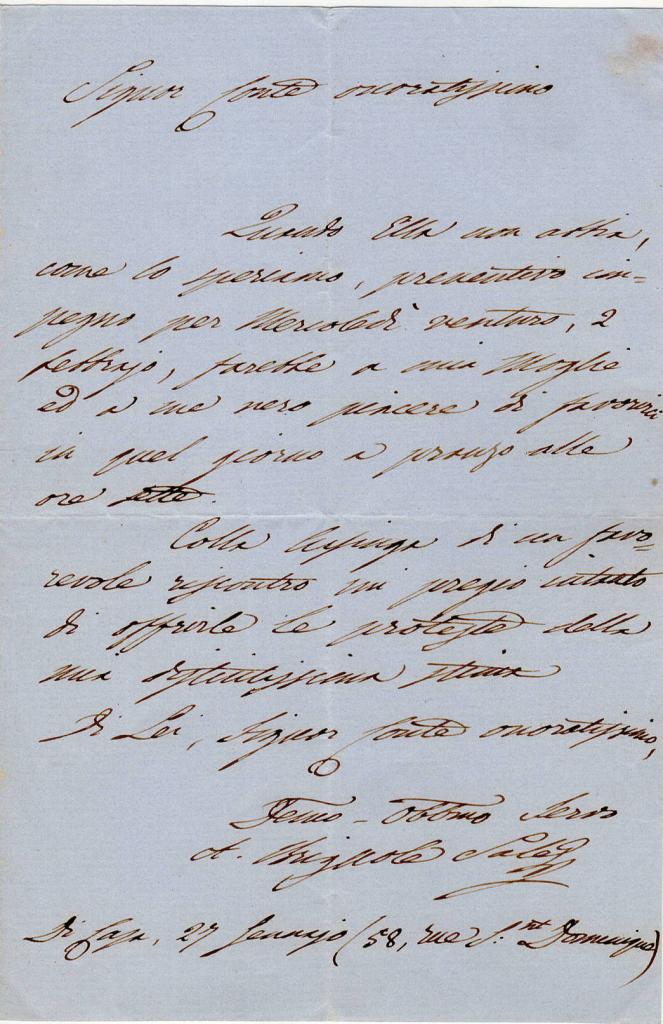 Signor Conte onoratissimo
Quando Ella non abbia,
come lo speriamo, preventivo im=
pegno per Mercoledì venturo, 2
febbrajo, farebbe a mia Moglie
ed a me vero piacere di favorirci
in quel giorno a pranzo alle
ore sette.
Colla lusinga di un favo=
revole riscontro mi pregio intanto
di offrirle le proteste della
mia distintissima stima
Di Lei, Signor Conte onoratissimo,
Devmo - Obbmo Servo
A. Brignole Sale
Di Casa, 27 Gennajo (58, rue S.nt Dominique)